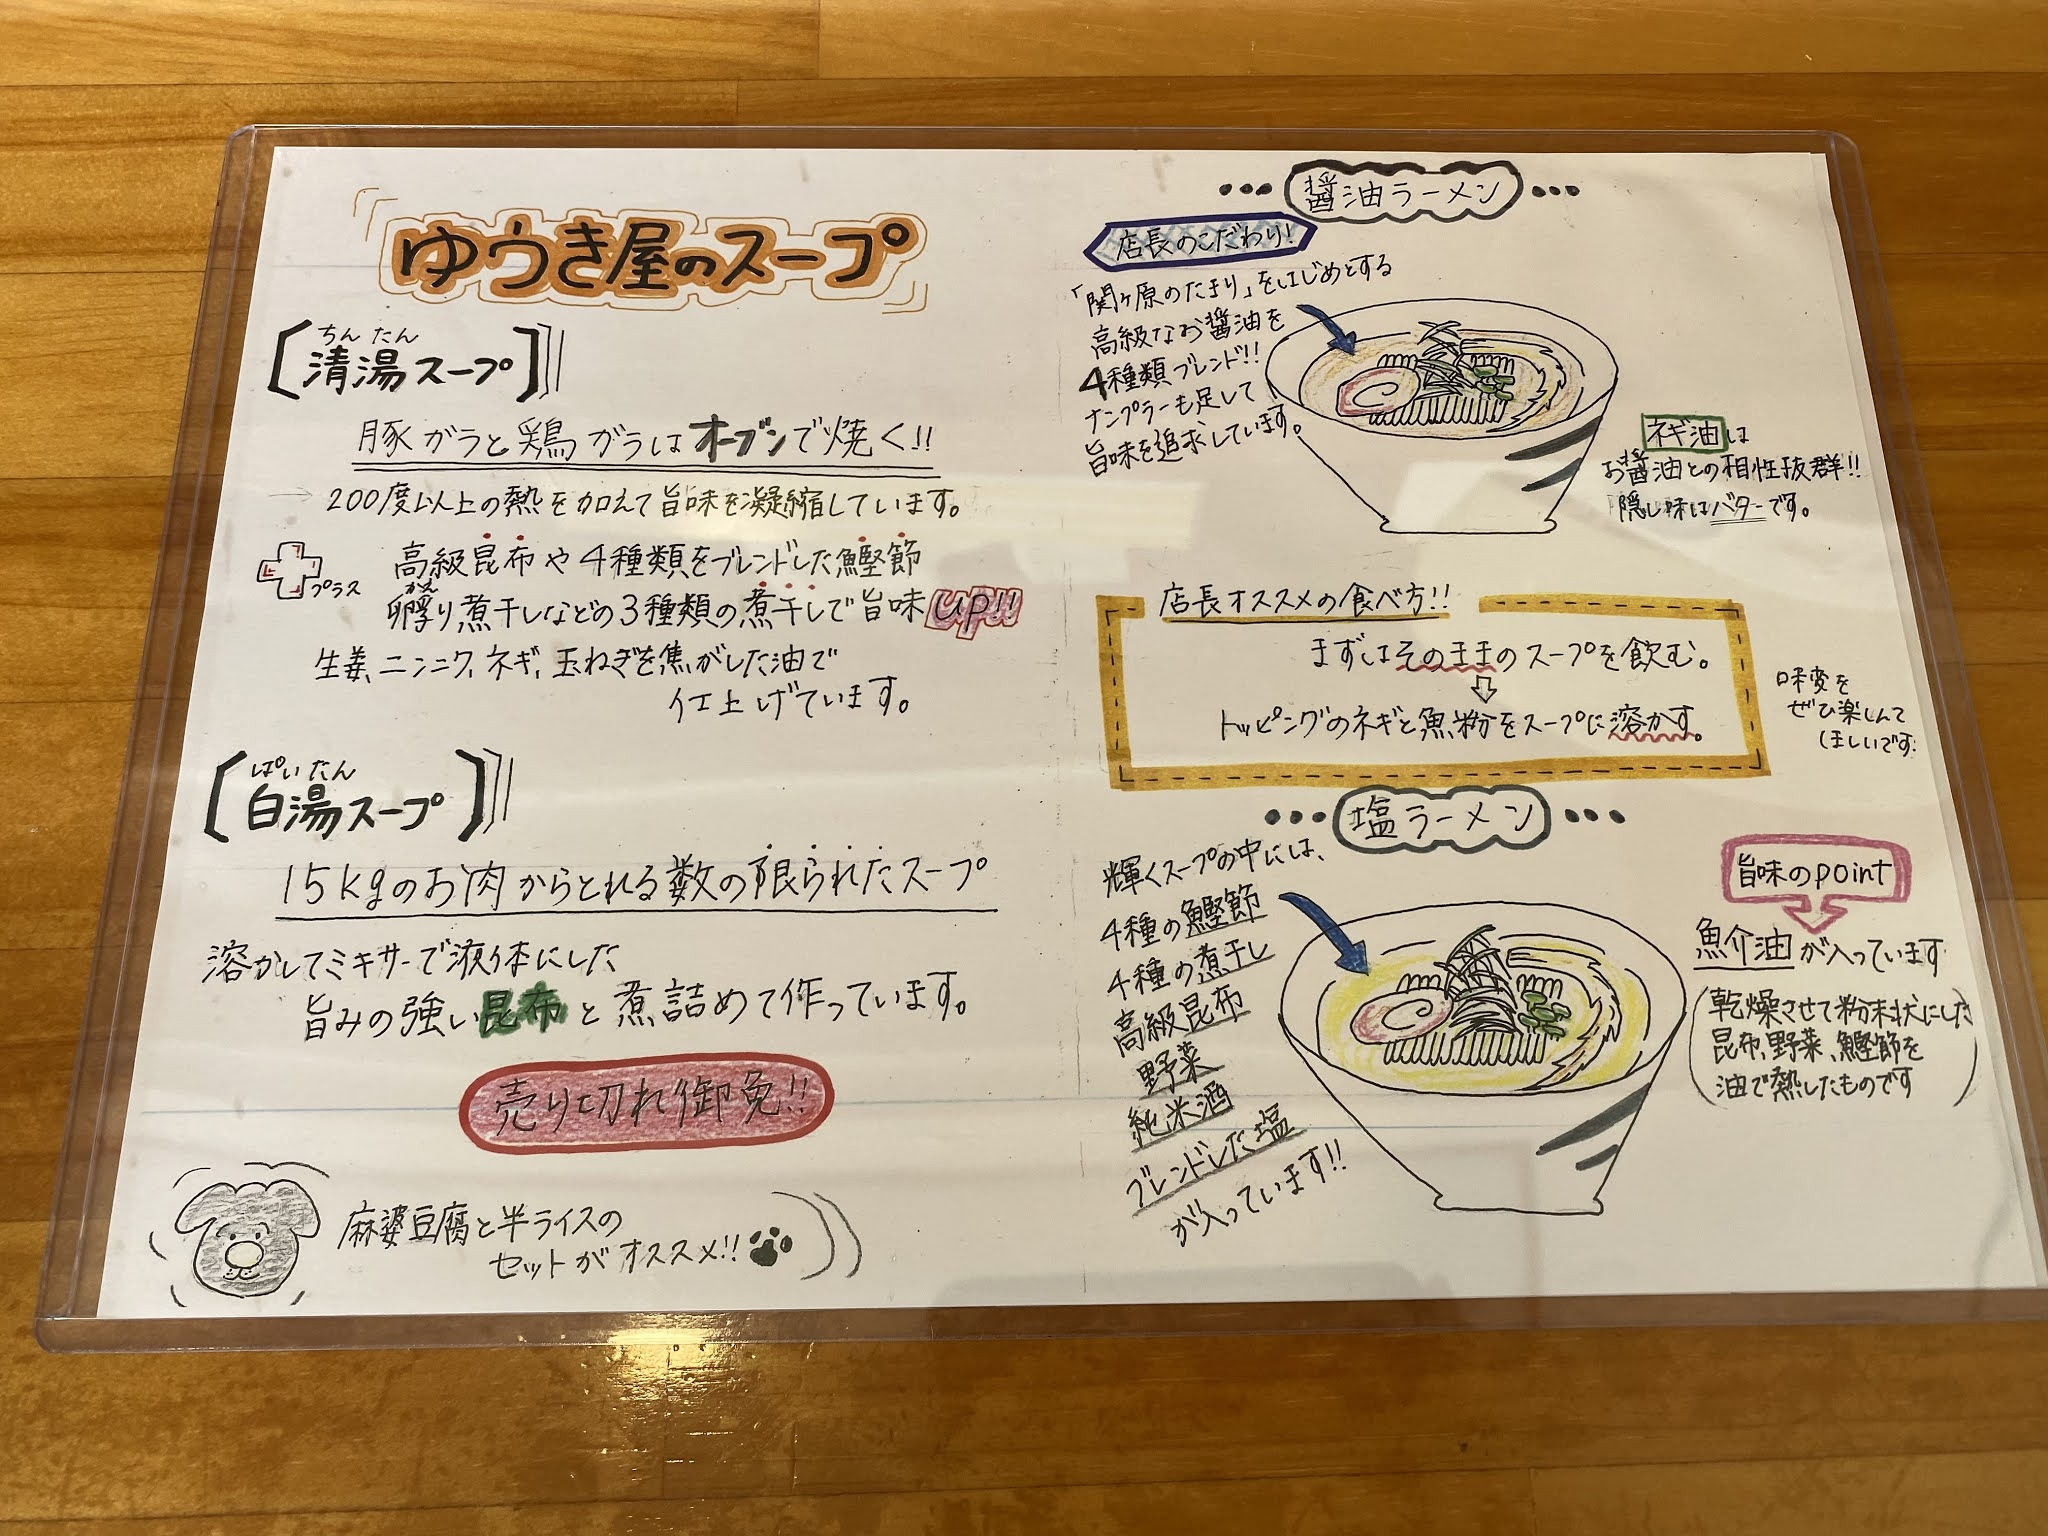 ゆうき屋のスープ
ちんたん
清湯スープ
豚ガラと鶏ガラはオーブンで焼く!!
→200度以上の熱を加えて旨味を凝縮しています。
プラス
高級昆布や4種類をブレンドした鰹節
かえ
孵り煮干しなどの3種類の煮干しで旨味up!!
生姜、ニンニク、ネギ、玉ねぎを焦がした油で
仕上げています。
ぱいたん
白湯スープ
15kgのお肉からとれる数の限られたスープ
溶かしてミキサーで液体にした
旨みの強い昆布と煮詰めて作っています。
売り切れ御免!!
麻婆豆腐と半ライスの
セットがオススメ!!
醤油ラーメン
店長のこだわり!
「関ヶ原のたまり」をはじめとする
高級なお醤油を
4種類ブレンド!!
ナンプラーも足して
旨味を追求しています。
ネギ油は
お醤油との相性抜群!!
隠し味はバターです。
店長オススメの食べ方!!
まずはそのままのスープを飲む。
トッピングのネギと魚粉をスープに溶かす。
味変を
ぜひ楽しんで
ほしいです
塩ラーメン
輝くスープの中には、
4種の鰹節
4種の煮干し
高級昆布
野菜
純米酒
ブレンドした塩
が入っています!!
旨味のpoint
魚介油が入っています
(乾燥させて粉末状にした
昆布、野菜、鰹節を
油で熱したものです)